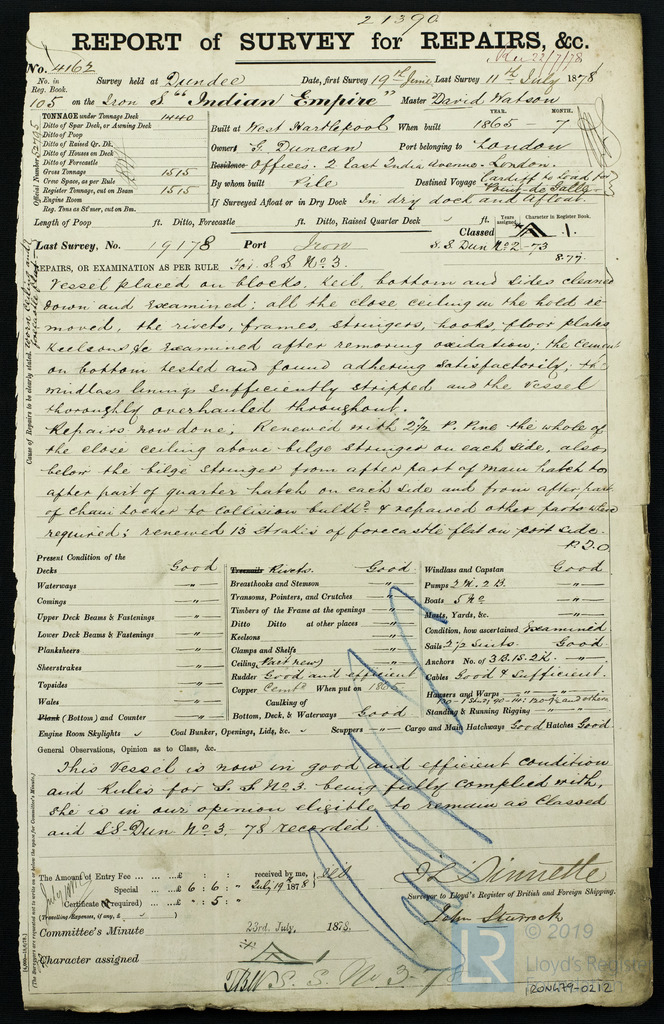 21390
REPORT of SURVEY for REPAIRS, &c.
No. 4162
No. in Reg. Book. Survey held at Dundee Date, first Survey 19th June Last Survey 11th July 1878
105 on the Iron S "Indian Empire" Master David Watson
TONNAGE under Tonnage Deck 1440
Ditto of Spar Deck, or Awning Deck
Ditto of Poop
Ditto of Raised Qr. Dk.
Ditto of Houses on Deck
Ditto of Forecastle
Gross Tonnage 1515
Crew Space, as per Rule
Register Tonnage, cut on Beam 1515
Engine Room
Reg. Tons as St'mer, cut on Bm.
Official Number 52795
YEAR. MONTH.
Built at West Hartlepool When built 1865 - 7
Owners F. Duncan Port belonging to London
Residence Offices. 2 East India Avenue. London.
By whom built Pile Destined Voyage Cardiff to load for Point-de-Galle
If Surveyed Afloat or in Dry Dock In dry dock and Afloat.
Length of Poop ft. Ditto, Forecastle ft. Ditto, Raised Quarter Deck ft.
Years assigned Character in Register Book.
Classed A 1.
Last Survey, No. 19178 Port Iron S.S. Dun No 2-73
8.77
REPAIRS, OR EXAMINATION AS PER RULE For S.S No 3.
Cause of Repairs to be clearly stated. Worn Ceiling and forecastle flat.
Vessel placed on blocks, keel, bottom and sides cleaned
down and examined; all the close ceiling in the hold re-
moved, the rivets, frames, stringers, hooks, floor plates
Keelsons &c examined after removing oxidation; the cement
on bottom tested and found adhering satisfactorily; the
windlass linings sufficiently stripped and the vessel
thoroughly overhauled throughout.
Repairs now done; Renewed with 2 1/2 P. Pine the whole of
the close ceiling above bilge stringer on each side, also
below the bilge stringer from after part of main hatch to
after part of quarter hatch on each side and from after part
of Chain Locker to Collision bulkhd & repaired other parts where
required; renewed 13 strakes of forecastle flat on port side.
P.T.O
Present Condition of the
Decks Good
Waterways "
Comings "
Upper Deck Beams & Fastenings "
Lower Deck Beams & Fastenings "
Planksheers "
Sheerstrakes "
Topsides "
Wales "
Plank (Bottom) and Counter "
Engine Room Skylights
Treenails Rivets. Good
Breasthooks and Stemson "
Transoms, Pointers, and Crutches "
Timbers of the Frame at the openings "
Ditto Ditto at other places "
Keelsons "
Clamps and Shelfs "
Ceiling (Part new) "
Rudder Good and efficient
Copper Cemt. When put on 1865
Caulking of
Bottom, Deck, & Waterways Good
Coal Bunker, Openings, Lids, &c. Scuppers " Cargo and Main Hatchways Good Hatches Good
Windlass and Capstan Good
Pumps 2 M. 2 B. "
Boats 5 No "
Masts, Yards, &c. "
Condition, how ascertained Examined
Sails 2 1/2 Suits. Good
Anchors No. of 3 B. 1 S. 2 K. "
Cables Good & Sufficient.
Hawsers and Warps "
Standing & Running Rigging "
General Observations, Opinion as to Class, &c.
This Vessel is now in good and efficient condition
and Rules for S.S No 3. being fully complied with,
she is in our opinion eligible to remain as Classed
and S.S-Dun No 3.-78 recorded.
The Amount of Entry Fee ...£ : : received by me,
Special ...£ 6 : 6 : " July 19th 1878
Certificate (if required) ...£ " : 5 : "
(Travelling Expenses, if any, £ )
J L Sinnette
Surveyor to Lloyd's Register of British and Foreign Shipping.
John Sturrock
Committee's Minute 23rd July, 1878.
Character assigned A
S. S. No 3-78
LR
© 2019
Lloyd's Register
IRON479-0212